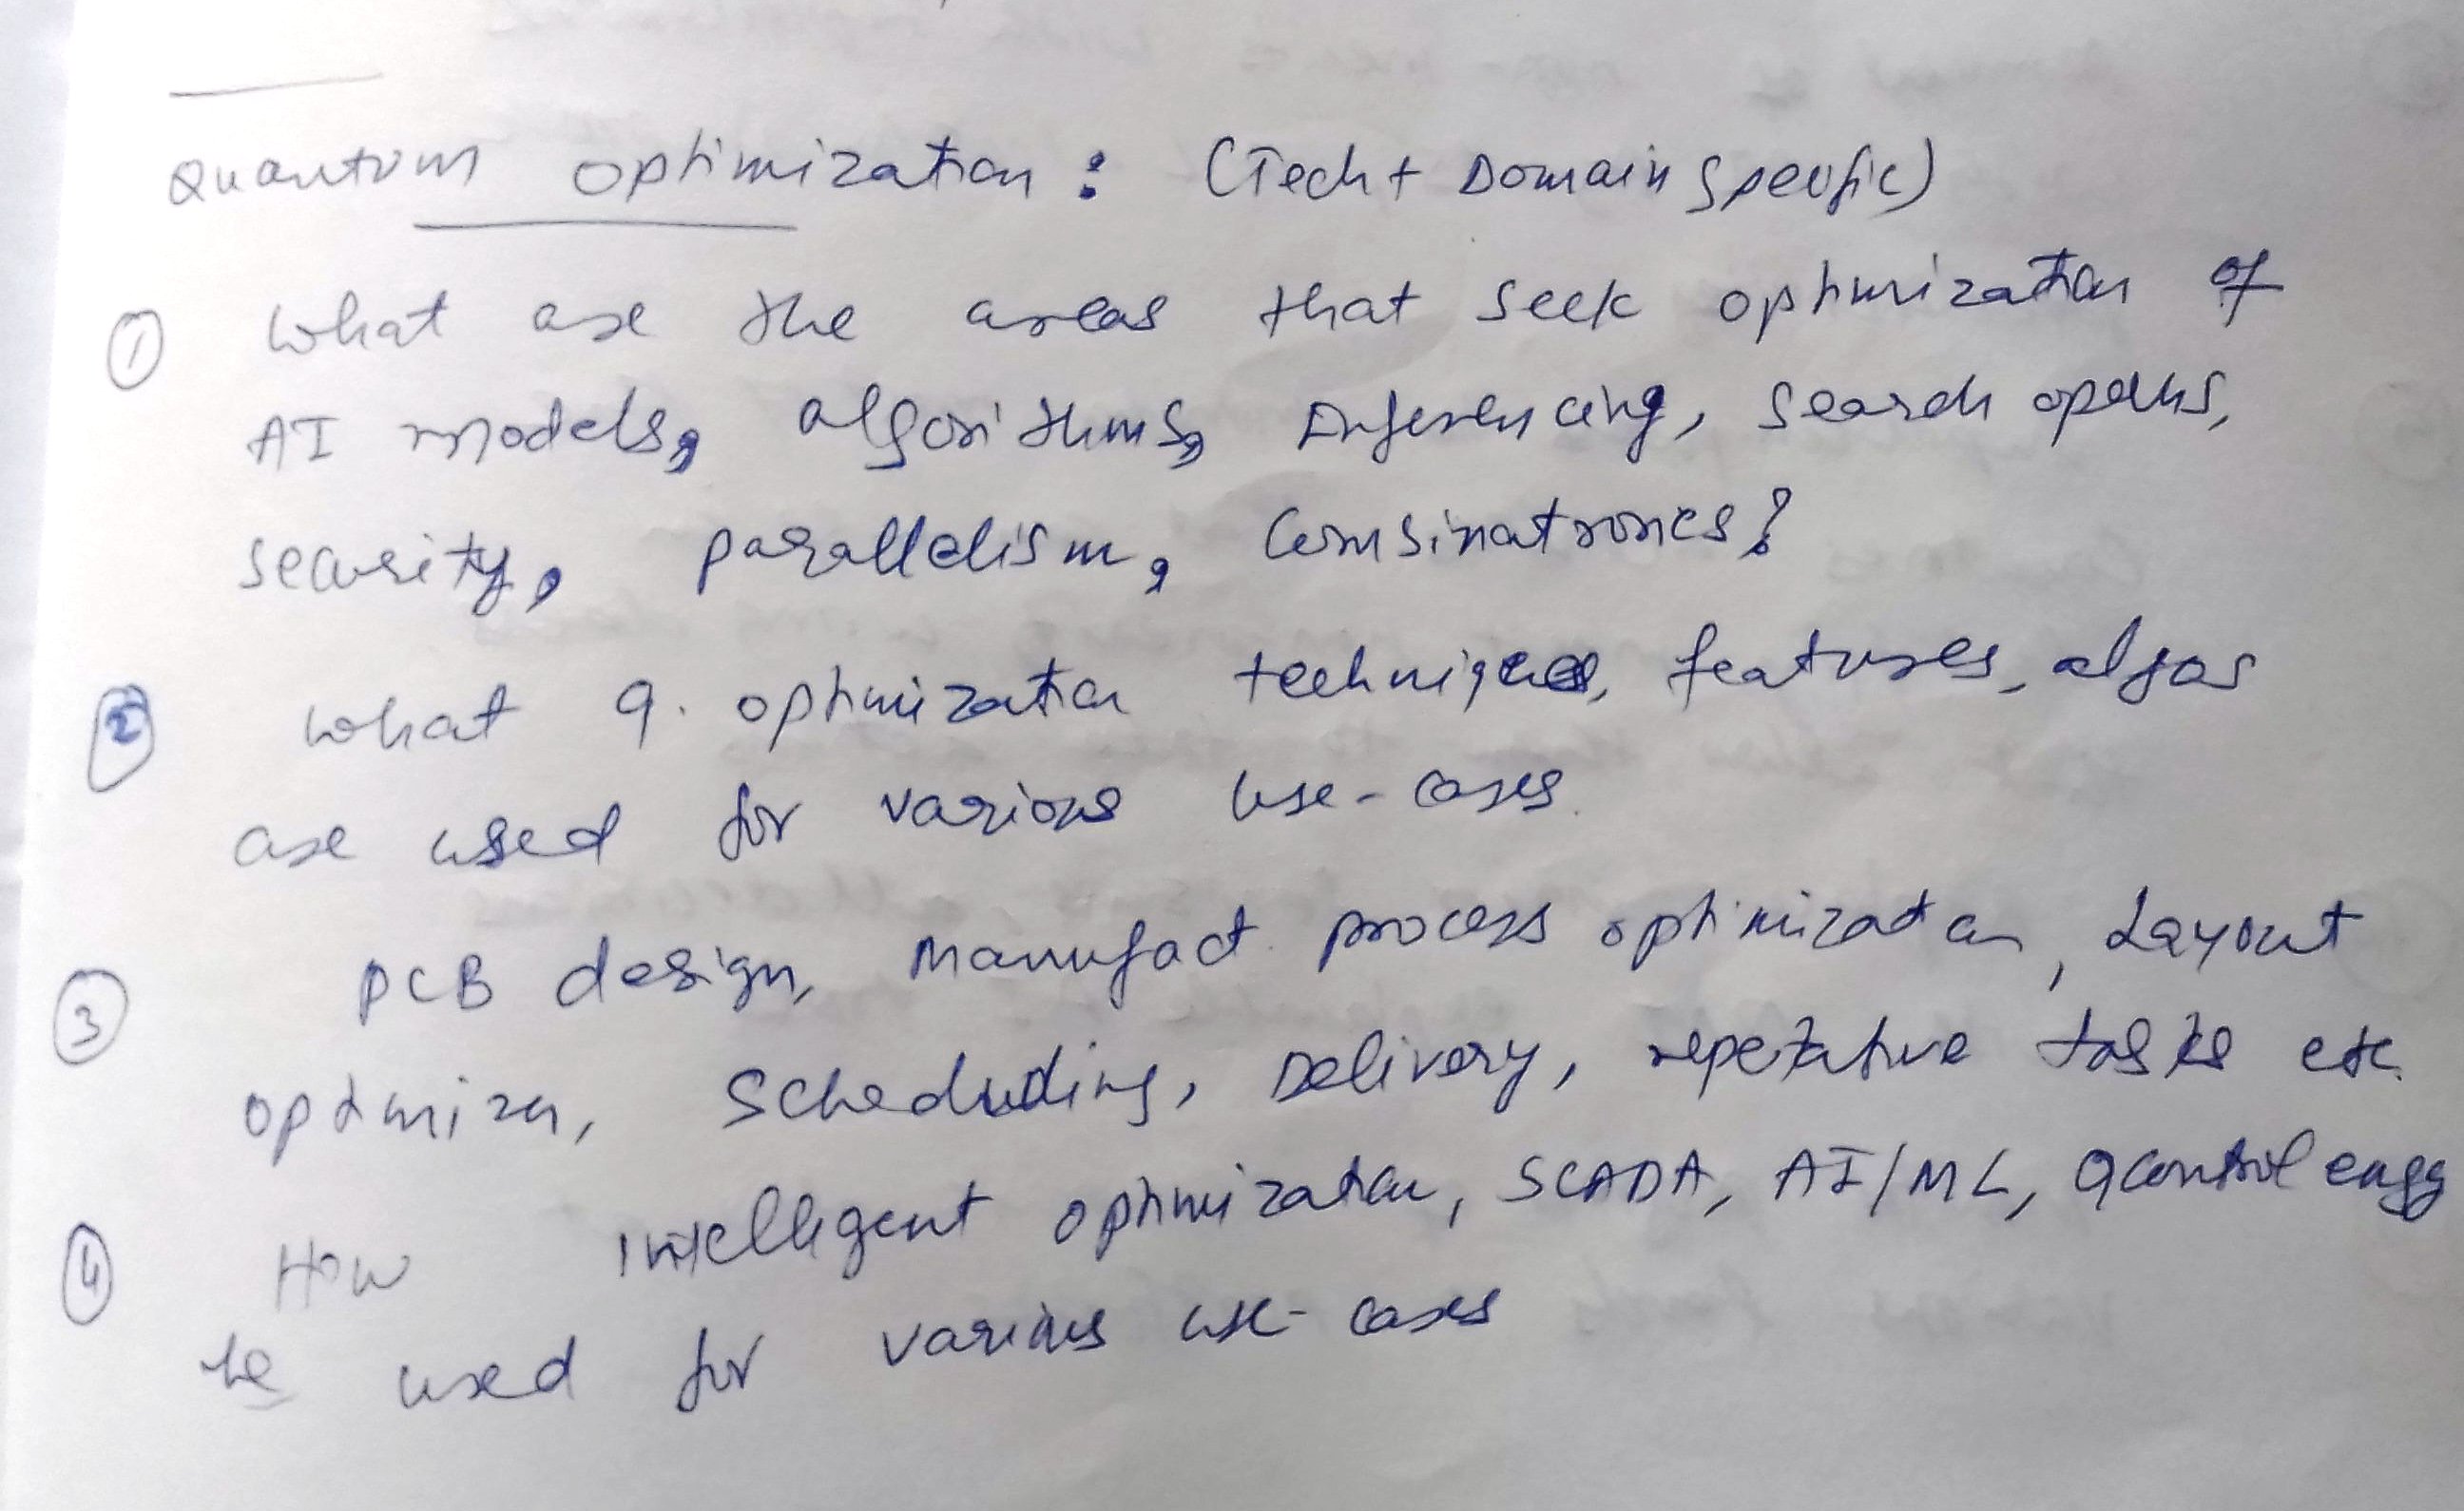 Quantum optimization : (Tech + Domain Specific)
① What are the areas that seek optimization of
AI models, algorithms, Inferencing, search opens,
security, parallelism, Combinatorics?
② What q. optimization techniques, features, algos
are used for various use-cases.
③ PCB design, Manufact process optimization, Layout
optmizn, Scheduling, Delivery, repetative tasks etc.
④ How intelligent optimization, SCADA, AI/ML, qcontrol engg
be used for various use-cases